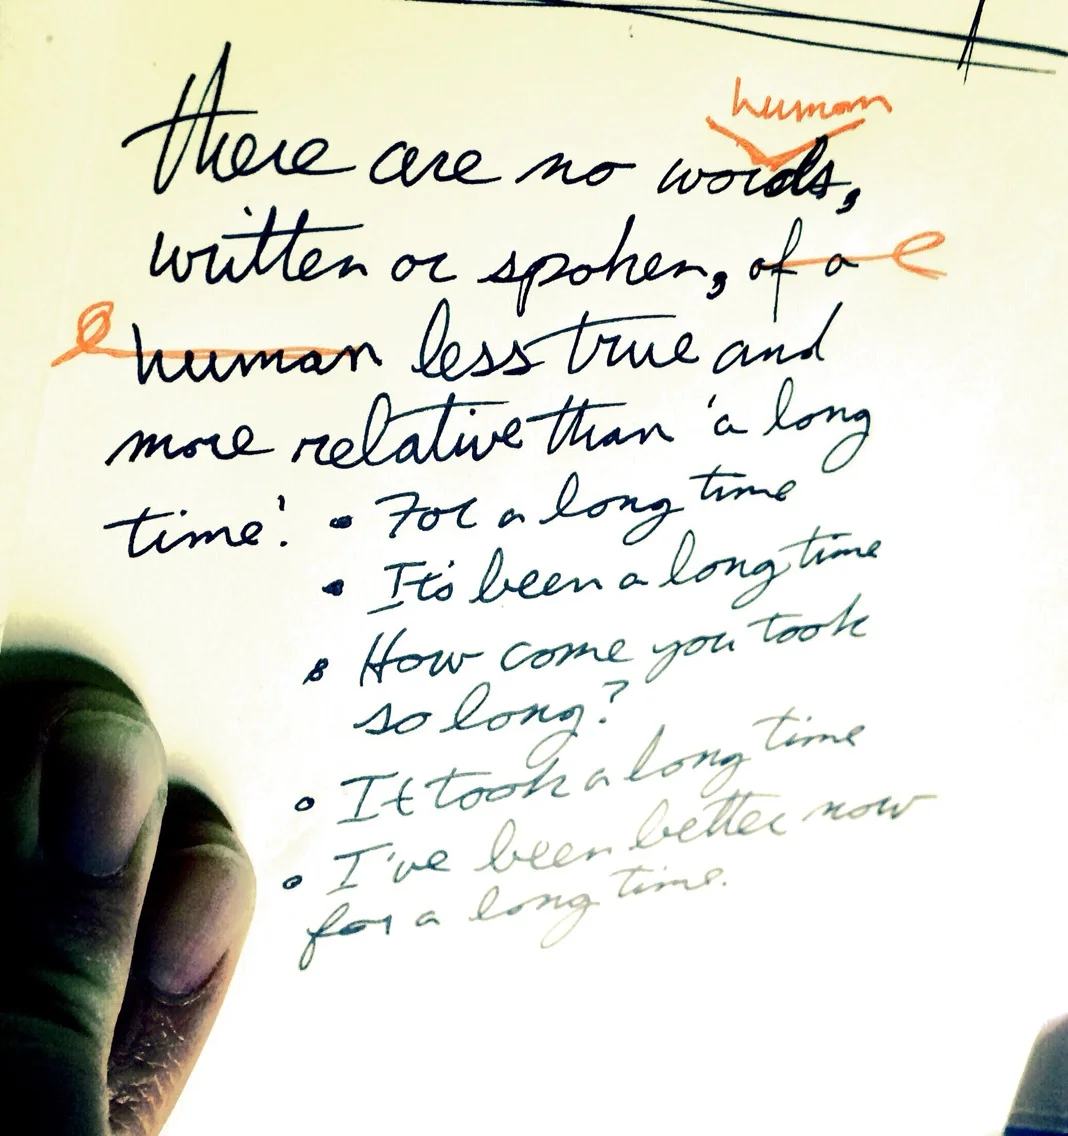 human
there are no words,
written or spoken, of a
human less true and
more relative than 'a long
time'. • For a long time
• It's been a long time
• How come you took
so long?
• It took a long time
• I've been better now
for a long time.